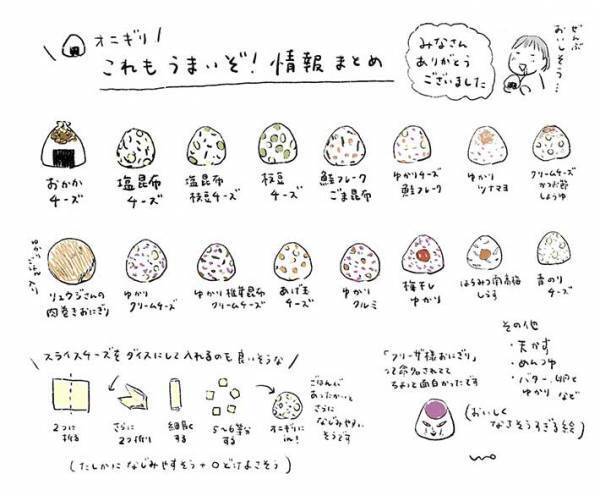 オニギリ
これも うまいぞ! 情報 まとめ
みなさん
ありがとう
ございました
ぜんぶ
おいしそう…
おかか
チーズ
塩昆布
チーズ
塩昆布
枝豆チーズ
枝豆
チーズ
鮭フレーク
ごま昆布
ゆかりチーズ
鮭フレーク
ゆかり
ツナマヨ
クリームチーズ
かつお節
しょうゆ
リュウジさんの
肉巻きおにぎり
ゆかり
クリームチーズ
ゆかり 椎茸昆布
クリームチーズ
あげ玉
チーズ
ゆかり
クルミ
梅干し
ゆかり
はちみつ南高梅
しらす
青のり
チーズ
スライスチーズをダイスにして入れるのも良いそうな
2つに
折る
さらに
2つ折り
細長く
する
5〜6等分
する
オニギリに
in!
ごはんが
あったかいと
さらに
なじみやすい
そうです
(たしかに なじみやすそう+口どけよさそう)
「フリーザ様おにぎり」
って命名されてて
ちょっと面白かったです
(おいしく
なさそうすぎる絵)
その他
・天かす
・めんつゆ
・バター、卵と
ゆかり など